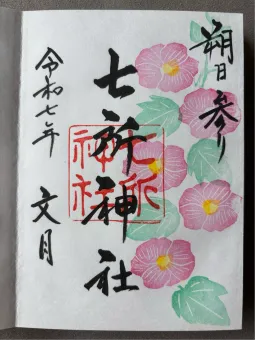 朔日参り
七所神社
七所神社
令和七年
文月